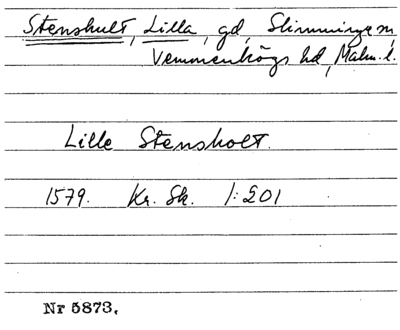 Stenshult, Lilla, gd, Slimminge sn,
Vemmenhögs hd, Malm. l.
Lille Stensholt.
1579. Kr. Sk. 1:201
Nr 5873.